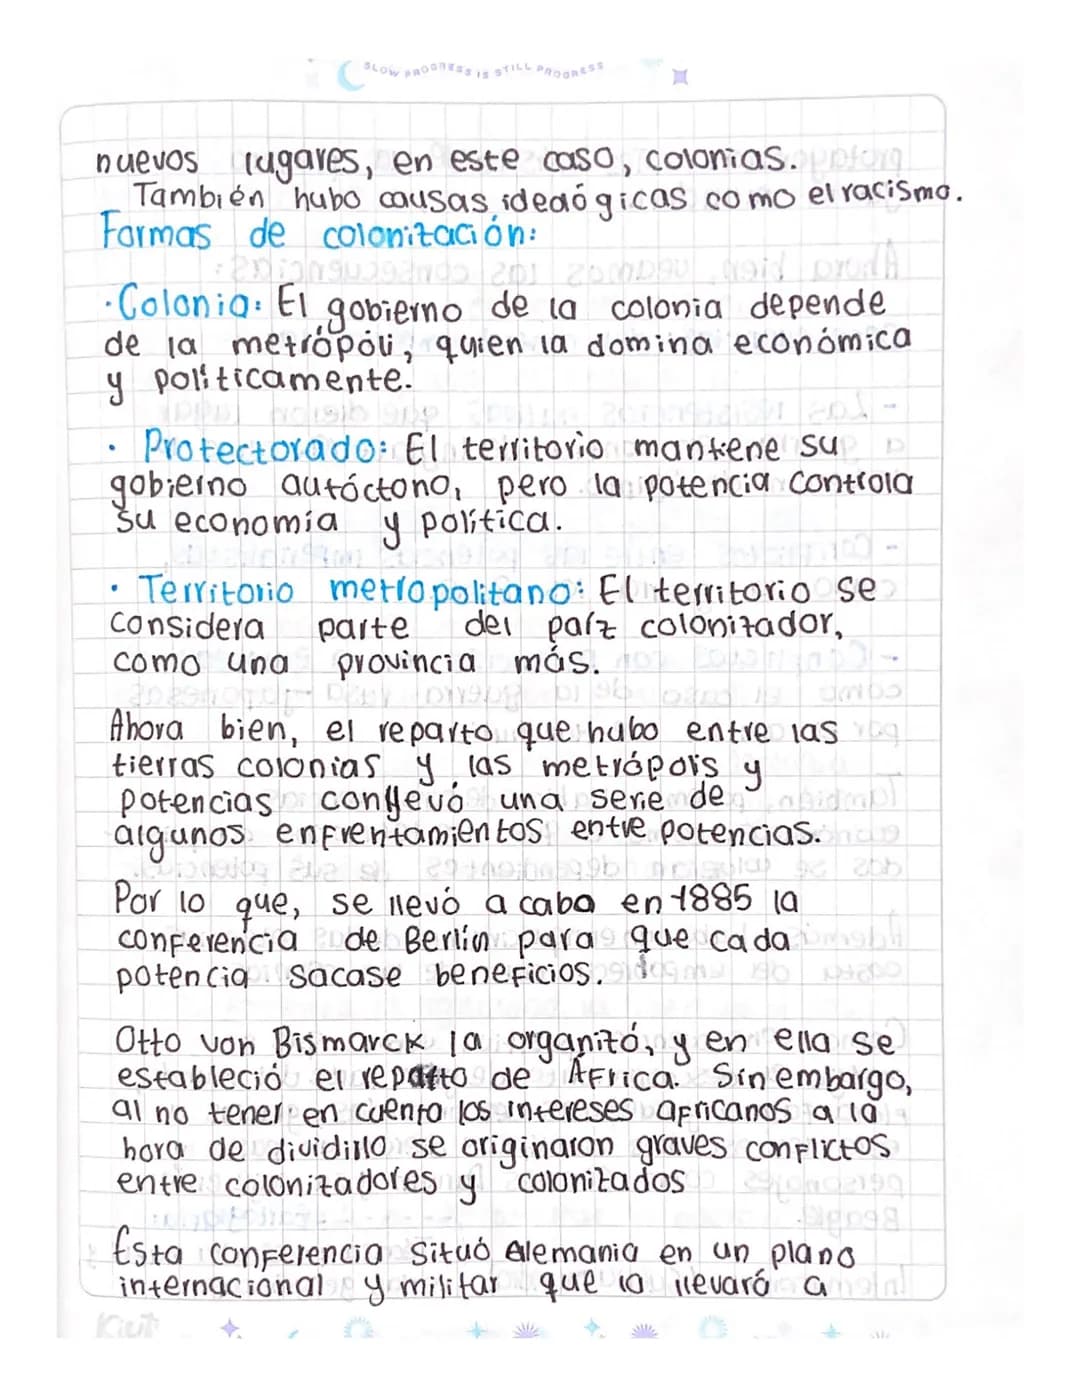 SLOW PROGRESS IS STILL PROGRESS
nuevos lugares, en este caso, colonias.
También hubo causas ideaógicas como el racismo.
Formas de colonización:
· Colonia: El gobierno de la colonia depende
de la metrópóli, quien la domina económica
y políticamente.
· Protectorado: El territorio mantiene su
gobierno autóctono, pero la potencia controla
su economía y política.
· Territorio metropolitano: El territorio se
considera parte del paíz colonizador,
como una provincia más.
Ahora bien, el reparto que hubo entre las
tierras colonias y las metrópois y
potencias conllevó una serie de
algunos enfrentamientos entre potencias.
Por lo que, se llevó a cabo en 1885 la
conferencia de Berlín para que cada
potencia sacase beneficios.
Otto von Bismarck la organizó, y en ella se
estableció el reparto de África. Sin embargo,
al no tener en cuenta los intereses africanos a la
hora de dividirlo se originaron graves conflictos
entre colonizadores y colonizados
Esta conferencia situó Alemania en un plano
internacional y militar que la llevaró a